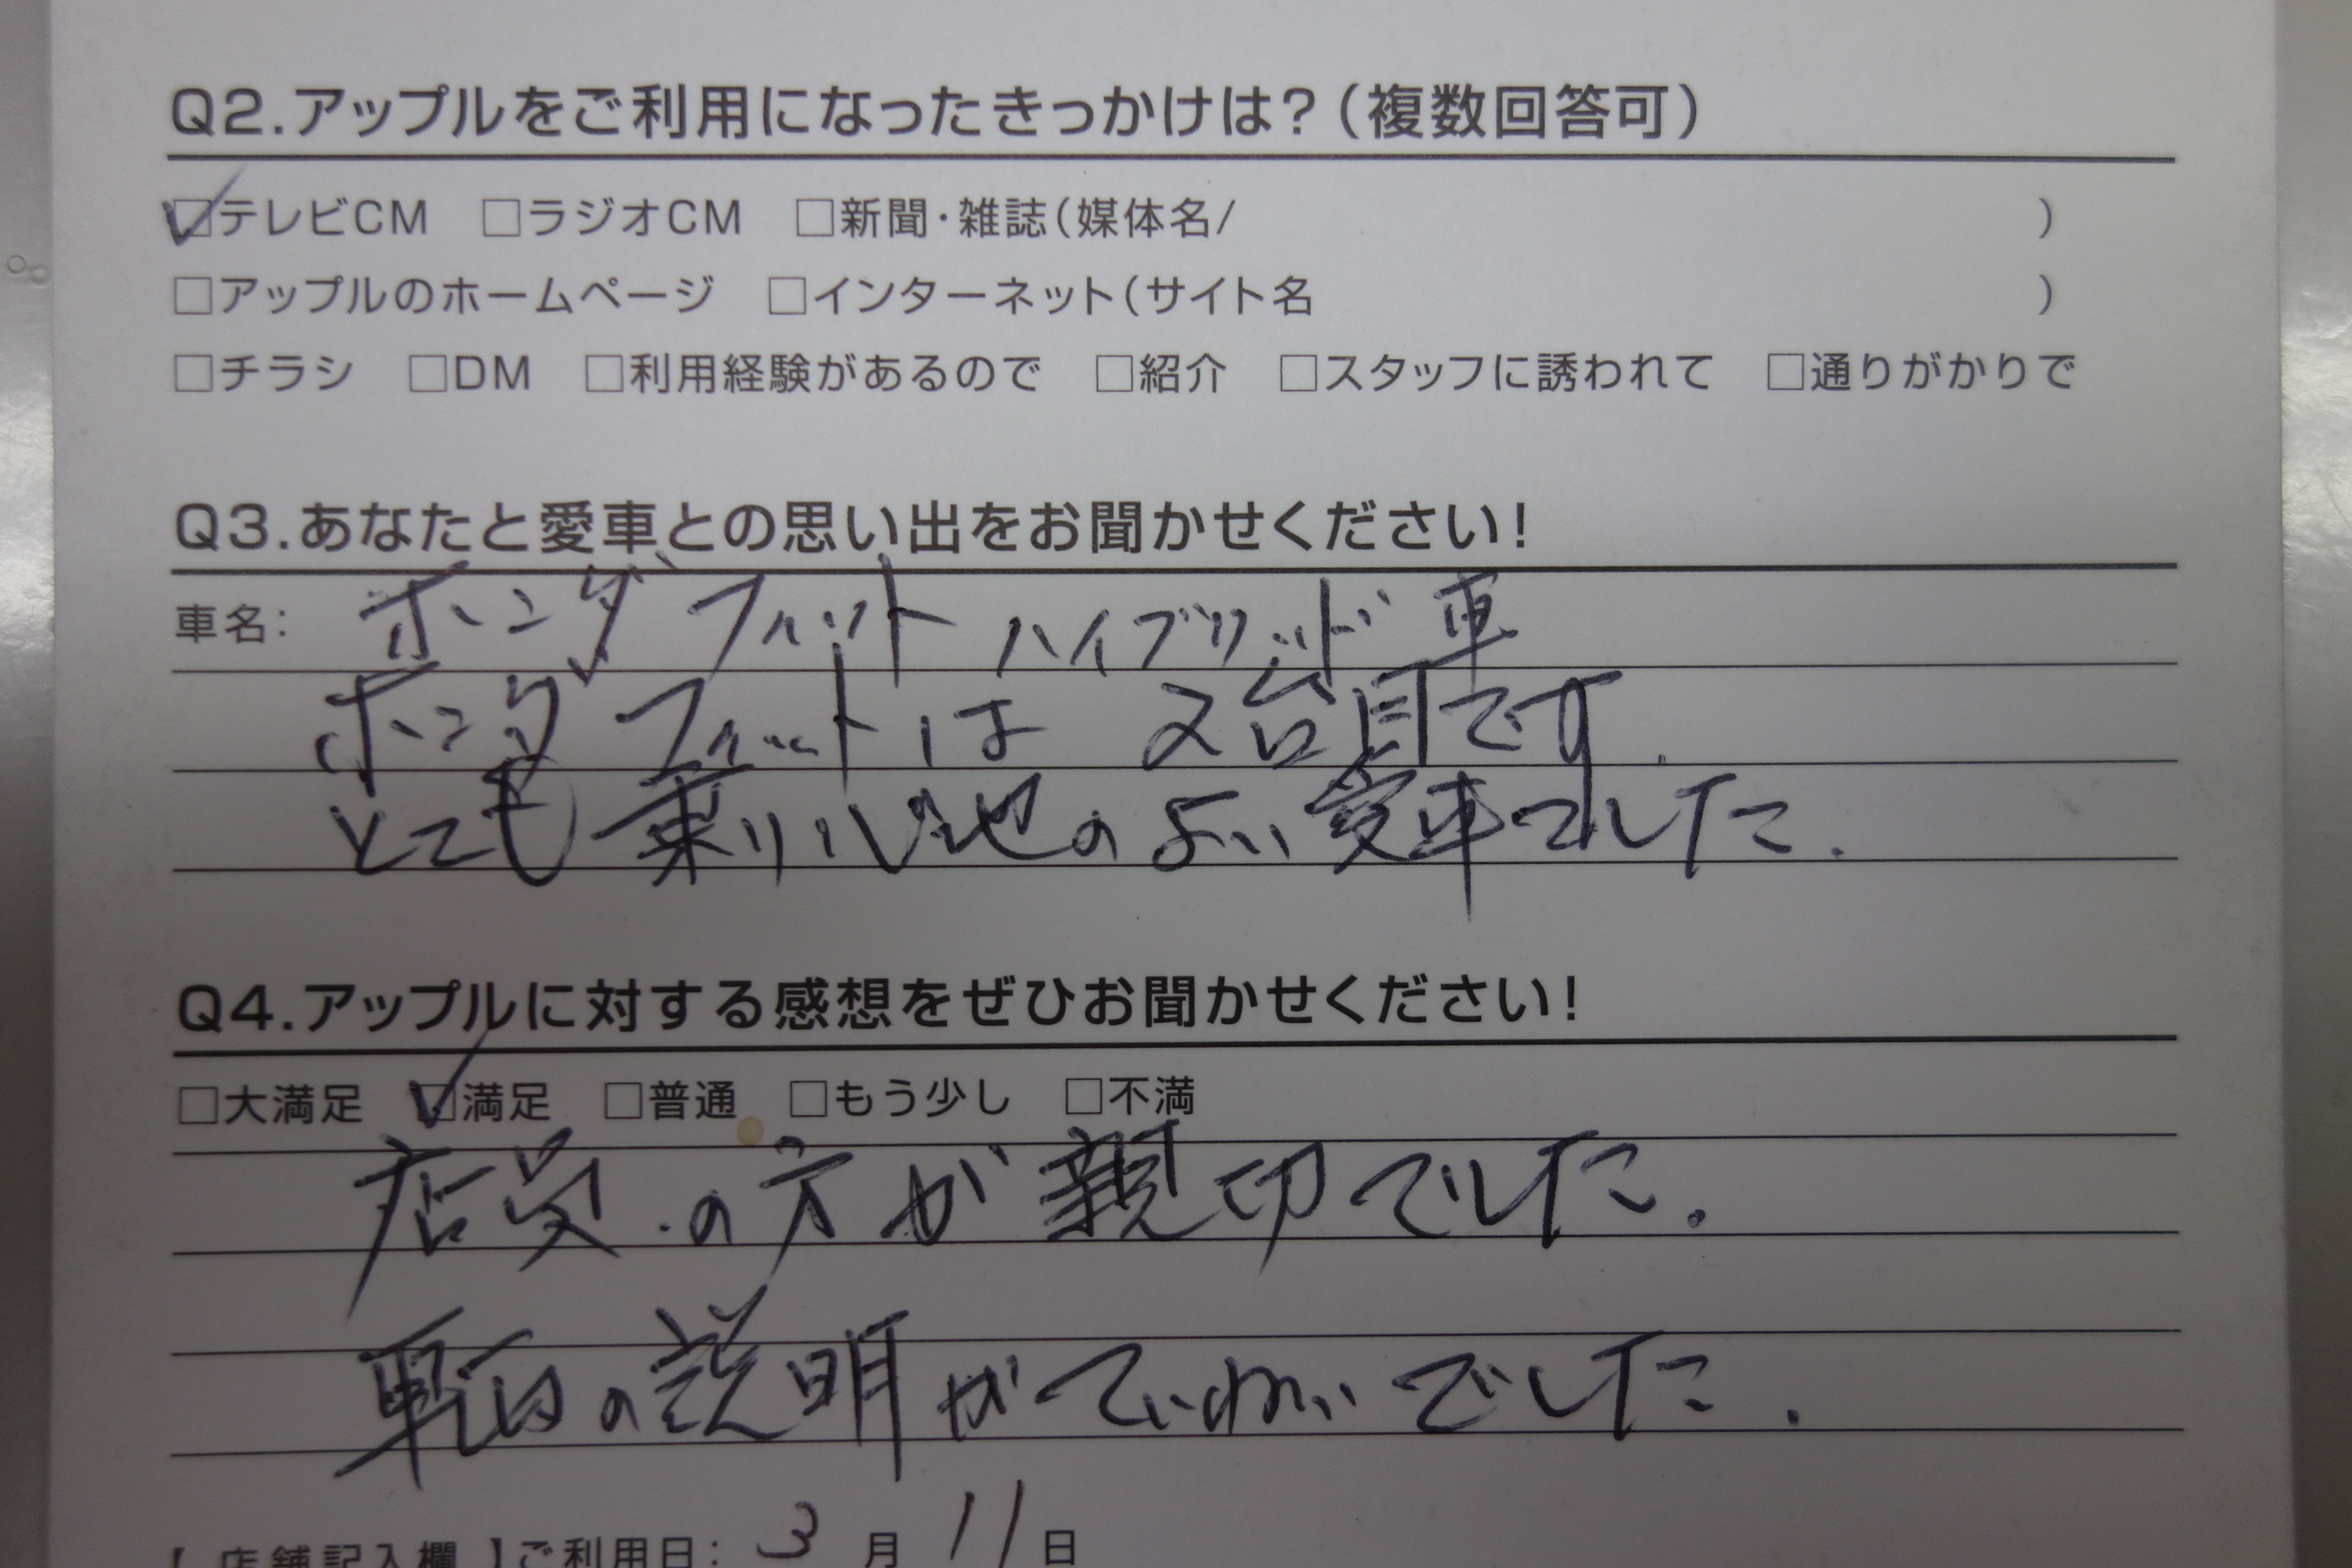 Q2.アップルをご利用になったきっかけは?(複数回答可)
☑テレビCM □ラジオCM □新聞・雑誌(媒体名/ )
□アップルのホームページ □インターネット(サイト名 )
□チラシ □DM □利用経験があるので □紹介 □スタッフに誘われて □通りがかりで
Q3.あなたと愛車との思い出をお聞かせください!
車名: ホンダ フィット ハイブリッド 車
ホンダ フィットは 2台目です.
とても乗り心地のよい愛車でした.
Q4.アップルに対する感想をぜひお聞かせください!
□大満足 ☑満足 □普通 □もう少し □不満
店員の方が親切でした.
の説明がていねいでした.
【 店舗記入欄 】ご利用日: 3 月 11 日